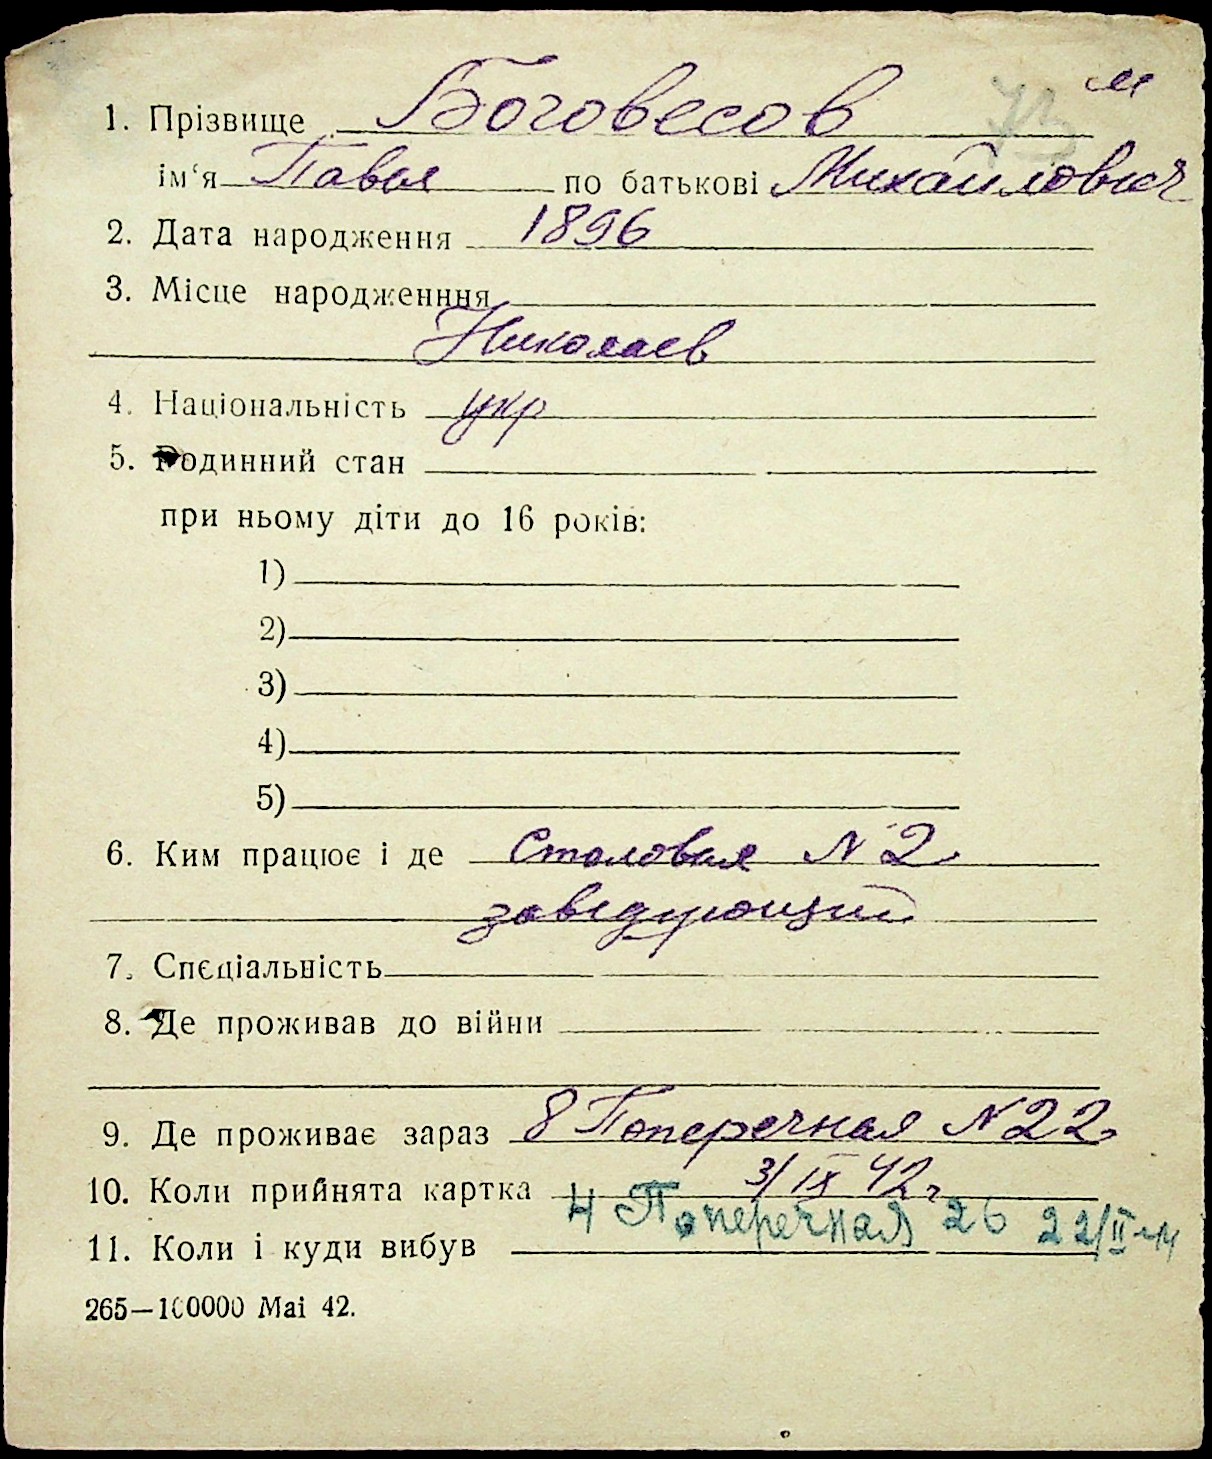 м
73
1. Прізвище Боговесов
ім‘я Павел по батькові Михайлович
2. Дата народження 1896
3. Місце народженння
Николаев
4. Національність укр
5. Родинний стан
при ньому діти до 16 років:
1)
2)
3)
4)
5)
6. Ким працює і де Столовая N 2
заведующий
7. Спеціальність
8. Де проживав до війни
9. Де проживає зараз 8 Поперечная N 22
10. Коли прийнята картка 3/IX 42 г
4 Поперечная 26 22/II-44
11. Коли і куди вибув
265—100000 Mai 42.